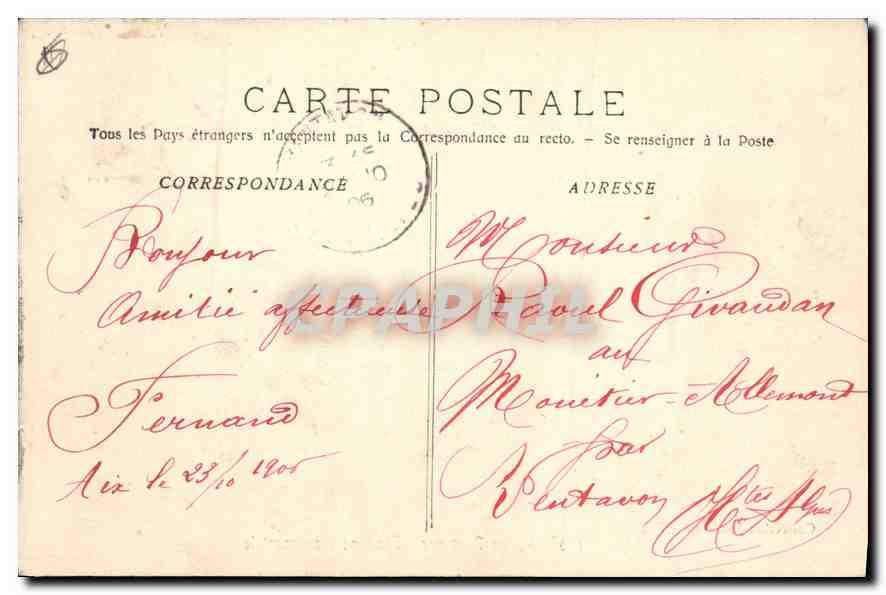 CARTE POSTALE
Tous les Pays étrangers n'acceptent pas la Correspondance au recto. - Se renseigner à la Poste
CORRESPONDANCE
Bonjour
Amitié affectueuse
Fernand
Aix le 23/10 1906
ADRESSE
Monsieur
Raoul Givaudan
au
Monêtier-Allemont
par
Ventavon Htes Alpes
CPAPHIL